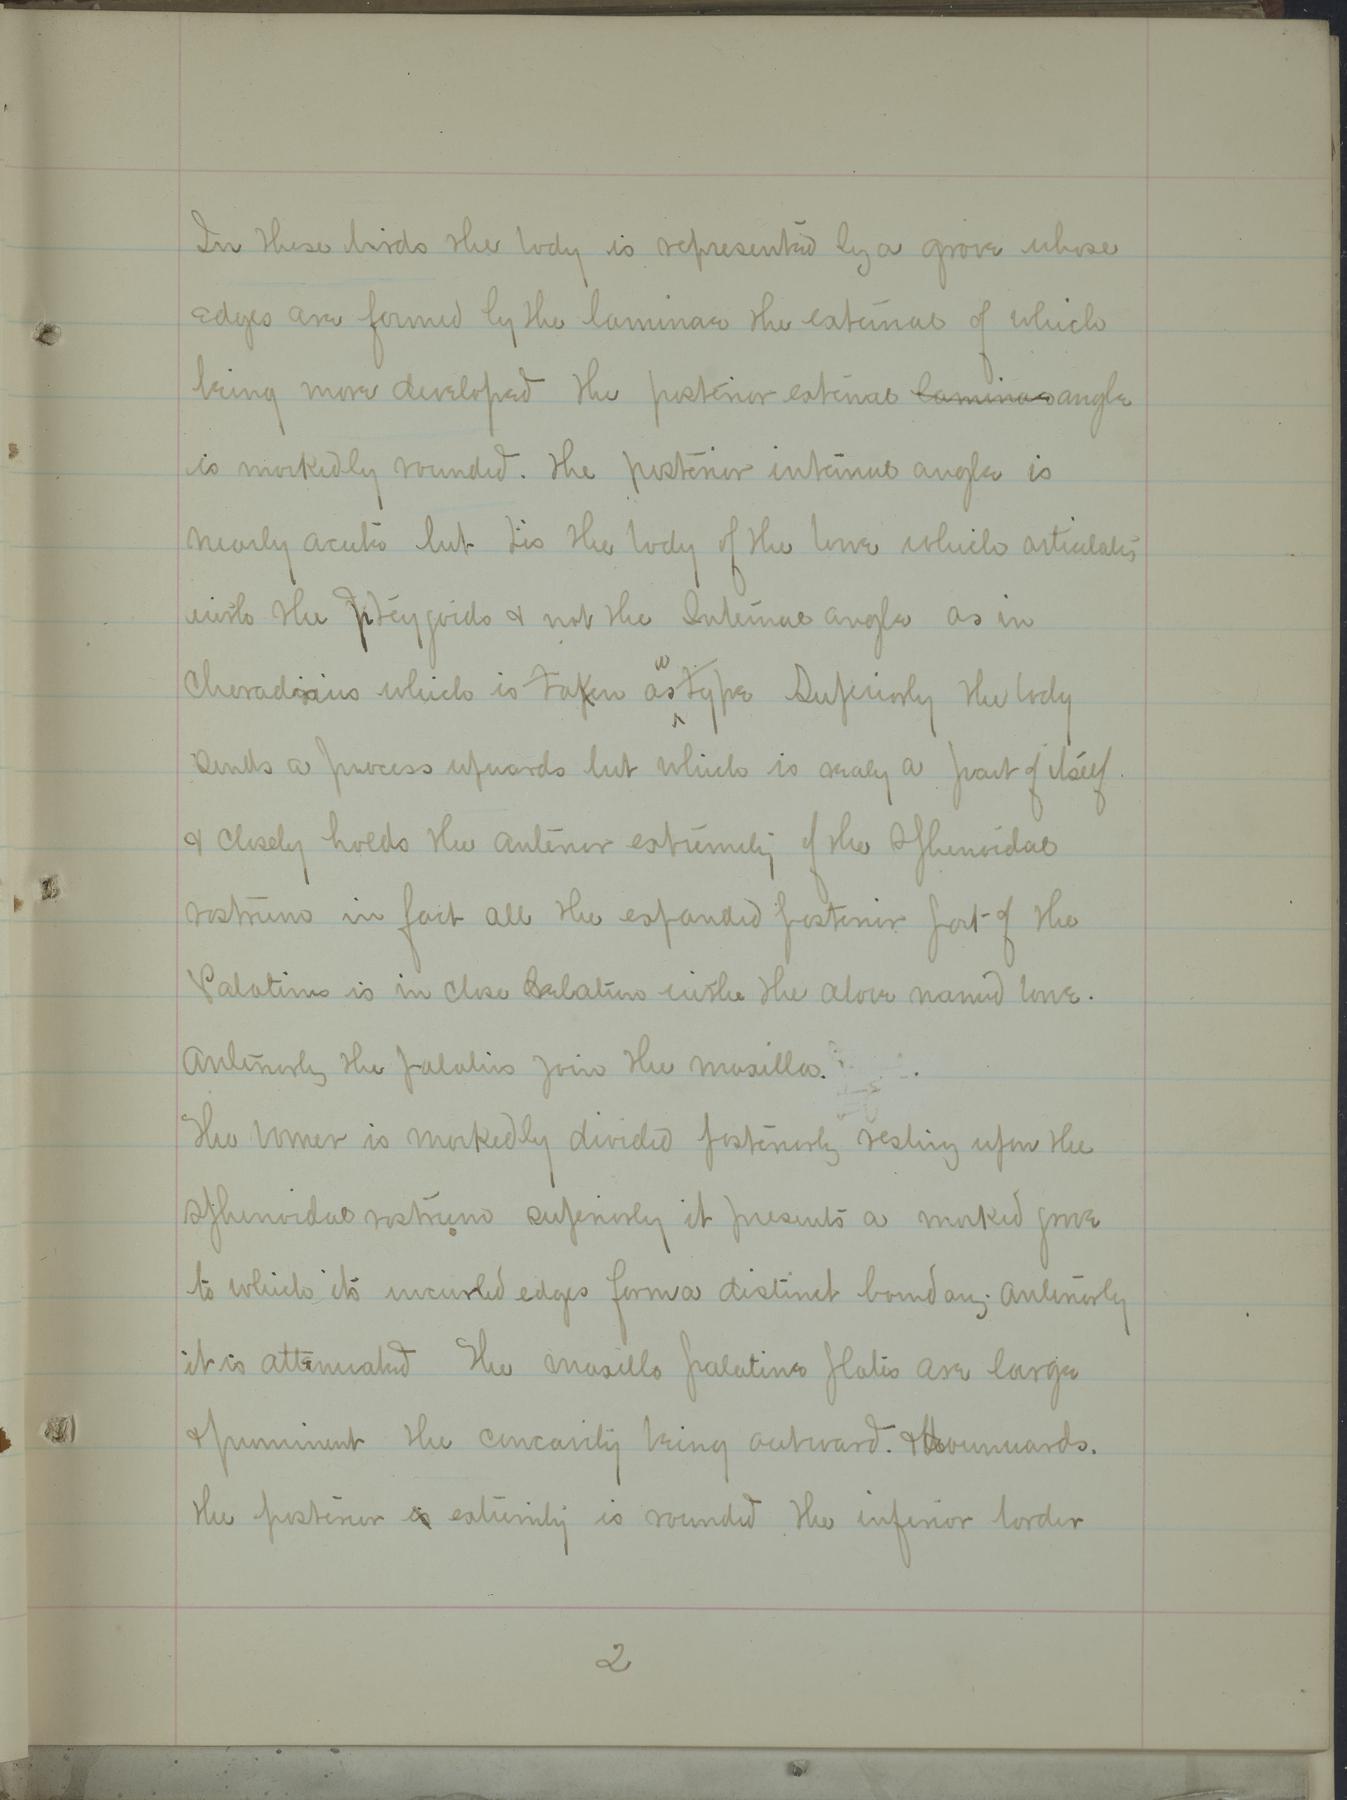 In these birds the body is represented by a grove whose
edges are formed by the laminae the external of which
being more developed the posterior external laminae angle
is markedly rounded. the posterior internal angle is
nearly acute but tis the body of the bone which articulates
with the pterygoids & not the Internal angle as in
Charadrius which is taken as a type Superiorly the body
sends a process upwards but which is realy a part of itself.
& closely holds the anterior extremity of the Sphenoidal
rostrum in fact all the expanded posterior part of the
Palatine is in close Relation withe the above named bone.
Anteriorly the palatins join the maxilla.
The vomer is markedly divided posteriorly resting upon the
Sphenoidal rostrum superiorly it presents a marked grove
to which its incurled edges form a distinct boundary. Anteriorly
it is attenuated The maxillo palatine plates are large
& prominent the concavity being outward. & downwards.
the posterior extremity is rounded the inferior border
2